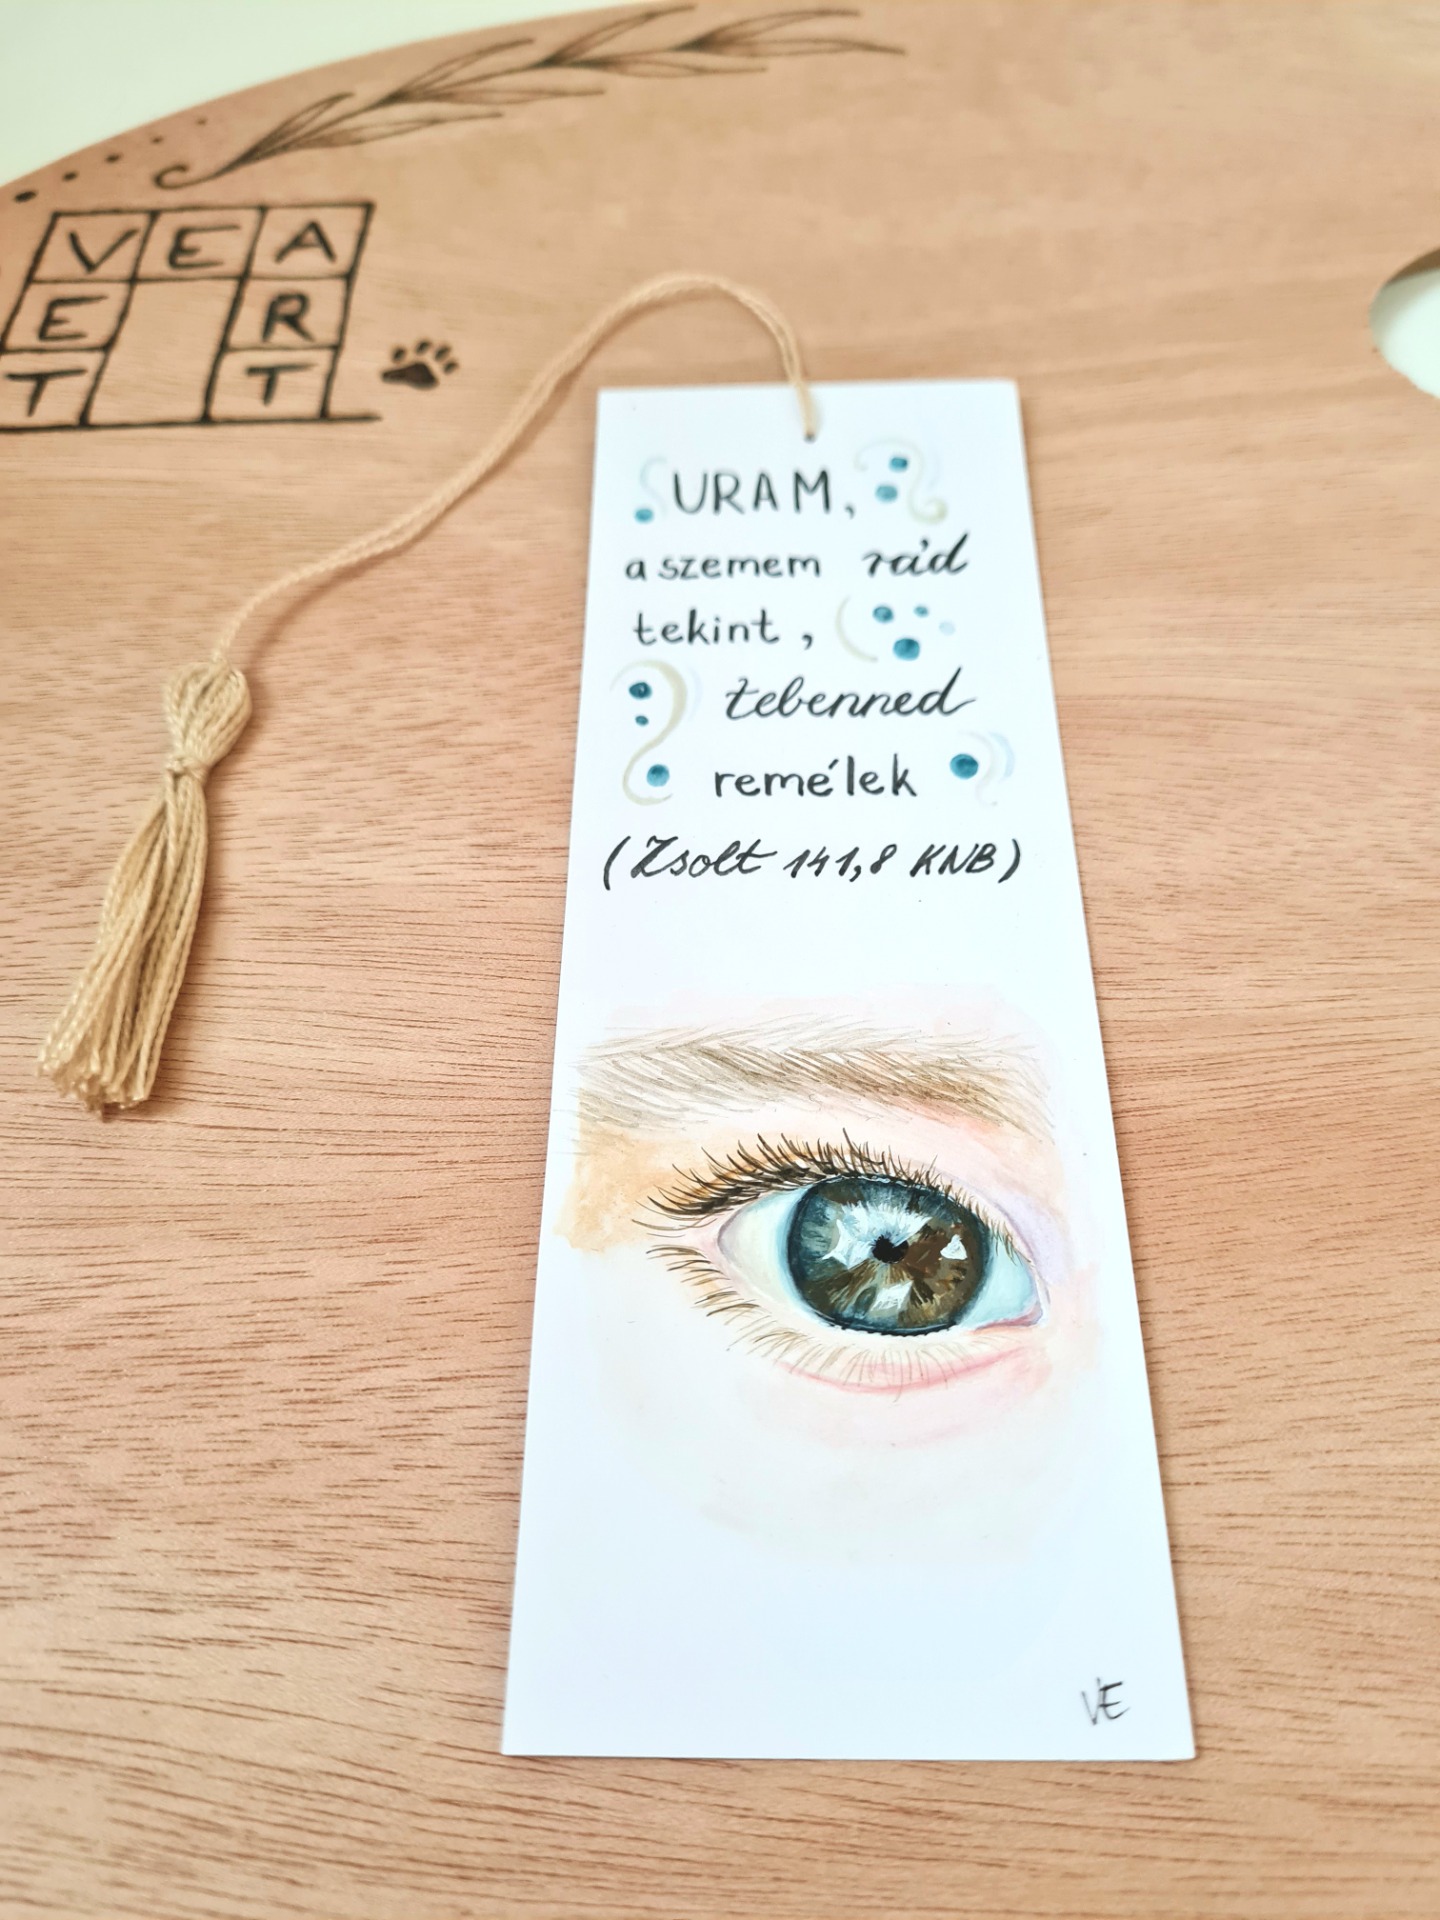 VEA
E R
T T
URAM,
a szemem rád
tekint,
tebenned
remélek
(Zsolt 141,8 KNB)
VE